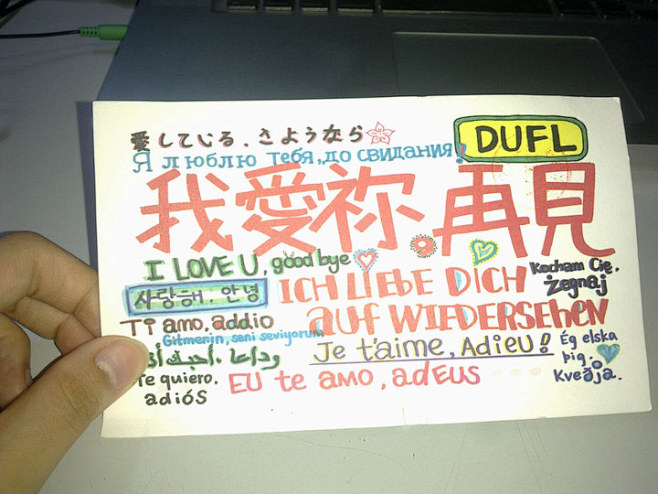 愛している. さようなら
DUFL
Я люблю тебя, до свидания!
我愛祢.再見
I LOVE U, good bye
사랑해. 안녕
ICH LIEBE DICH
AUF WIEDERSEHEN
Kocham Cię.
Żegnaj
Ti amo, addio
Gitmenin, seni seviyorum
وداعا. أحبك
Je t'aime, Adieu!
Ég elska
þig.
Kveðja.
Te quiero.
adiós
EU te amo, adEUS